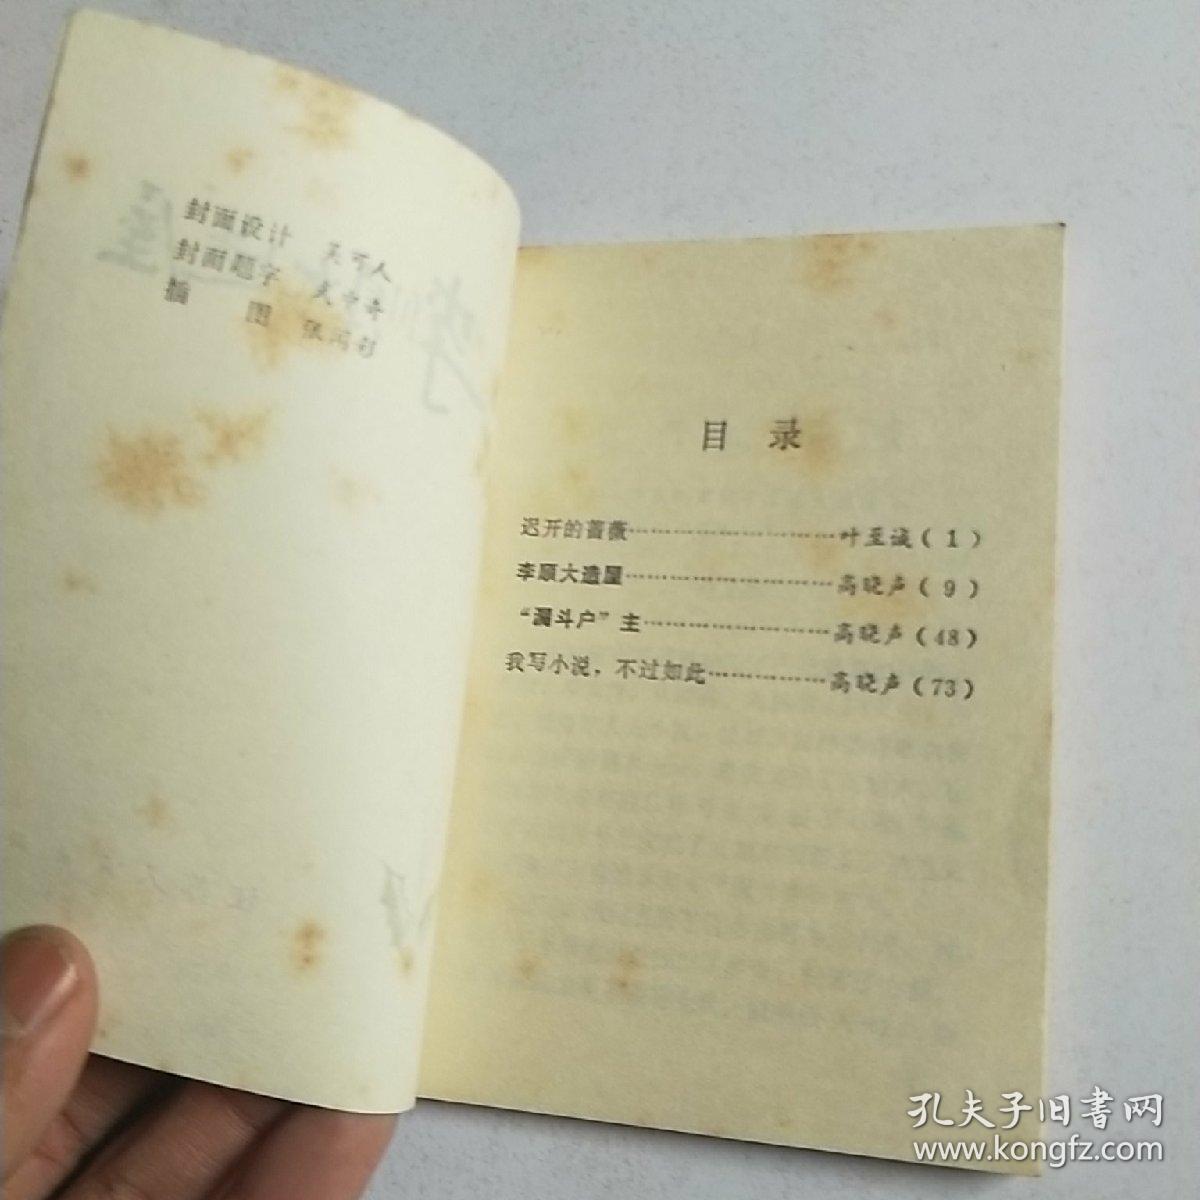 封面设计 吴可人
封面题字 武中奇
插 图
目 录
迟开的蔷薇……………………叶至诚(1)
李顺大造屋……………………高晓声(9)
“漏斗户”主…………………高晓声(48)
我写小说，不过如此……………高晓声(73)
孔夫子旧書网
www.kongfz.com